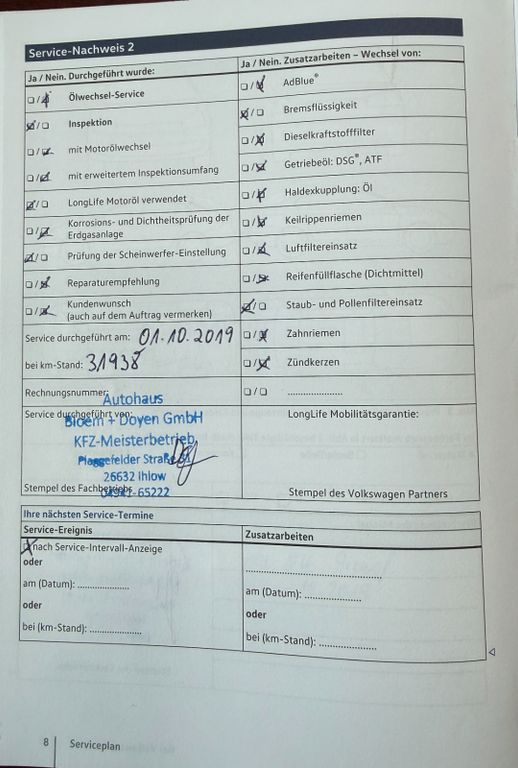 Service-Nachweis 2
Ja / Nein. Durchgeführt wurde:
☐/☒ Ölwechsel-Service
☒/☐ Inspektion
☐/☒ mit Motorölwechsel
☐/☒ mit erweitertem Inspektionsumfang
☒/☐ LongLife Motoröl verwendet
☐/☒ Korrosions- und Dichtheitsprüfung der
Erdgasanlage
☒/☐ Prüfung der Scheinwerfer-Einstellung
☐/☒ Reparaturempfehlung
☐/☒ Kundenwunsch
(auch auf dem Auftrag vermerken)
Service durchgeführt am: 01.10.2019
bei km-Stand: 31938
Rechnungsnummer:
Service durchgeführt von:
Autohaus
Bloem + Doyen GmbH
KFZ-Meisterbetrieb
Plaggefelder Straße
26632 Ihlow
04941-65222
Stempel des Fachbetriebs
Ja / Nein. Zusatzarbeiten – Wechsel von:
☐/☒ AdBlue®
☒/☐ Bremsflüssigkeit
☐/☒ Dieselkraftstofffilter
☐/☒ Getriebeöl: DSG®, ATF
☐/☒ Haldexkupplung: Öl
☐/☒ Keilrippenriemen
☐/☒ Luftfiltereinsatz
☐/☒ Reifenfüllflasche (Dichtmittel)
☒/☐ Staub- und Pollenfiltereinsatz
☐/☒ Zahnriemen
☐/☒ Zündkerzen
☐/☐ .....................
LongLife Mobilitätsgarantie:
Stempel des Volkswagen Partners
Ihre nächsten Service-Termine
Service-Ereignis
☒ nach Service-Intervall-Anzeige
oder
am (Datum): ....................
oder
bei (km-Stand): ....................
Zusatzarbeiten
..................................................
am (Datum): ....................
oder
bei (km-Stand): ....................
8 Serviceplan